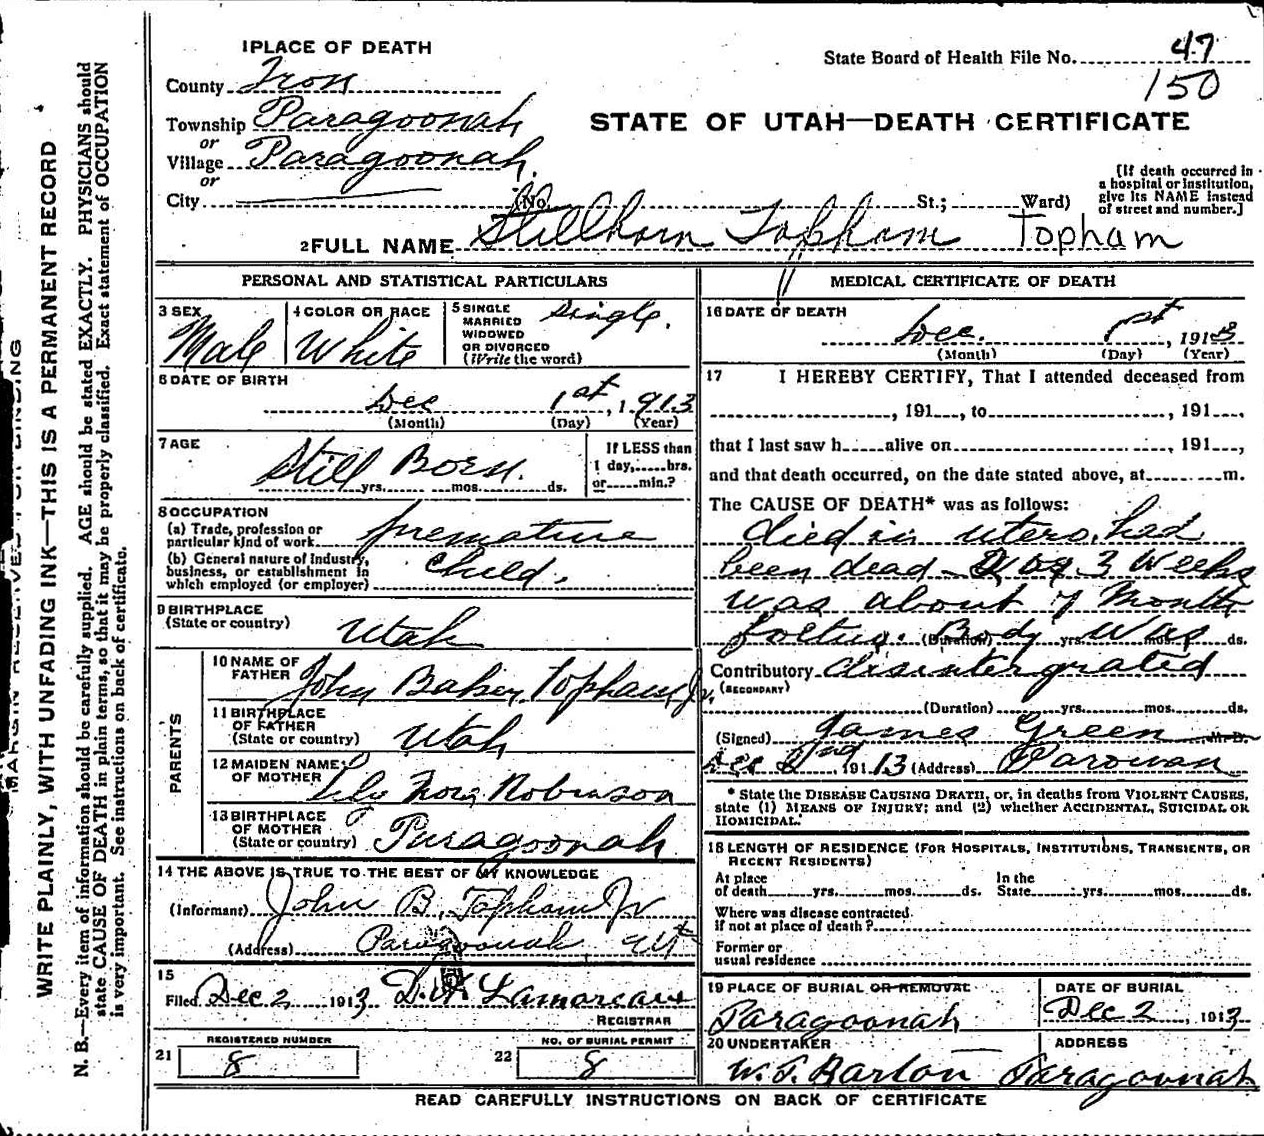 1 PLACE OF DEATH
State Board of Health File No. 47
150
County Iron
Township Paragoonah
or
Village Paragoonah
or
City (No. St.; Ward)
STATE OF UTAH—DEATH CERTIFICATE
[If death occurred in a hospital or institution, give its NAME instead of street and number.]
2 FULL NAME Stillborn Topham Topham
PERSONAL AND STATISTICAL PARTICULARS
3 SEX Male
4 COLOR OR RACE White
5 SINGLE MARRIED WIDOWED OR DIVORCED (Write the word) Single.
6 DATE OF BIRTH
Dec 1st, 1913
(Month) (Day) (Year)
7 AGE
Still Born.
yrs. mos. ds.
If LESS than 1 day, hrs. or min.?
8 OCCUPATION
(a) Trade, profession or particular kind of work premature
(b) General nature of industry, business, or establishment in which employed (or employer) Child.
9 BIRTHPLACE
(State or country) Utah
PARENTS
10 NAME OF FATHER John Baker Topham Jr.
11 BIRTHPLACE OF FATHER (State or country) Utah
12 MAIDEN NAME OF MOTHER Nora Robinson
13 BIRTHPLACE OF MOTHER (State or country) Paragoonah
14 THE ABOVE IS TRUE TO THE BEST OF MY KNOWLEDGE
(Informant) John B. Topham Jr
(Address) Paragoonah Ut
15
Filed Dec 2 1913 D.W. Lamoreaux
REGISTRAR
REGISTERED NUMBER
21 8
NO. OF BURIAL PERMIT
22 8
MEDICAL CERTIFICATE OF DEATH
16 DATE OF DEATH
Dec. 1st, 1913
(Month) (Day) (Year)
17 I HEREBY CERTIFY, That I attended deceased from
, 191 , to , 191 ,
that I last saw h alive on , 191 ,
and that death occurred, on the date stated above, at m.
The CAUSE OF DEATH* was as follows:
died in utero, had
been dead 2 or 3 Weeks
was about 7 Month
foetus. (Duration) Body yrs. Was mos. ds.
Contributory disintergrated
(SECONDARY)
(Duration) yrs. mos. ds.
(Signed) James Green M.D.
Dec 2nd, 1913 (Address) Parowan
* State the DISEASE CAUSING DEATH, or, in deaths from VIOLENT CAUSES,
state (1) MEANS OF INJURY; and (2) whether ACCIDENTAL, SUICIDAL OR
HOMICIDAL.
18 LENGTH OF RESIDENCE (FOR HOSPITALS, INSTITUTIONS, TRANSIENTS, OR
RECENT RESIDENTS)
At place of death yrs. mos. ds. In the State yrs. mos. ds.
Where was disease contracted
if not at place of death?
Former or
usual residence
19 PLACE OF BURIAL OR REMOVAL
Paragoonah
DATE OF BURIAL
Dec 2, 1913
20 UNDERTAKER
W. T. Barton
ADDRESS
Paragoonah
READ CAREFULLY INSTRUCTIONS ON BACK OF CERTIFICATE
WRITE PLAINLY, WITH UNFADING INK—THIS IS A PERMANENT RECORD
N. B.—Every item of information should be carefully supplied. AGE should be stated EXACTLY. PHYSICIANS should
state CAUSE OF DEATH in plain terms, so that it may be properly classified. Exact statement of OCCUPATION
is very important. See instructions on back of certificate.